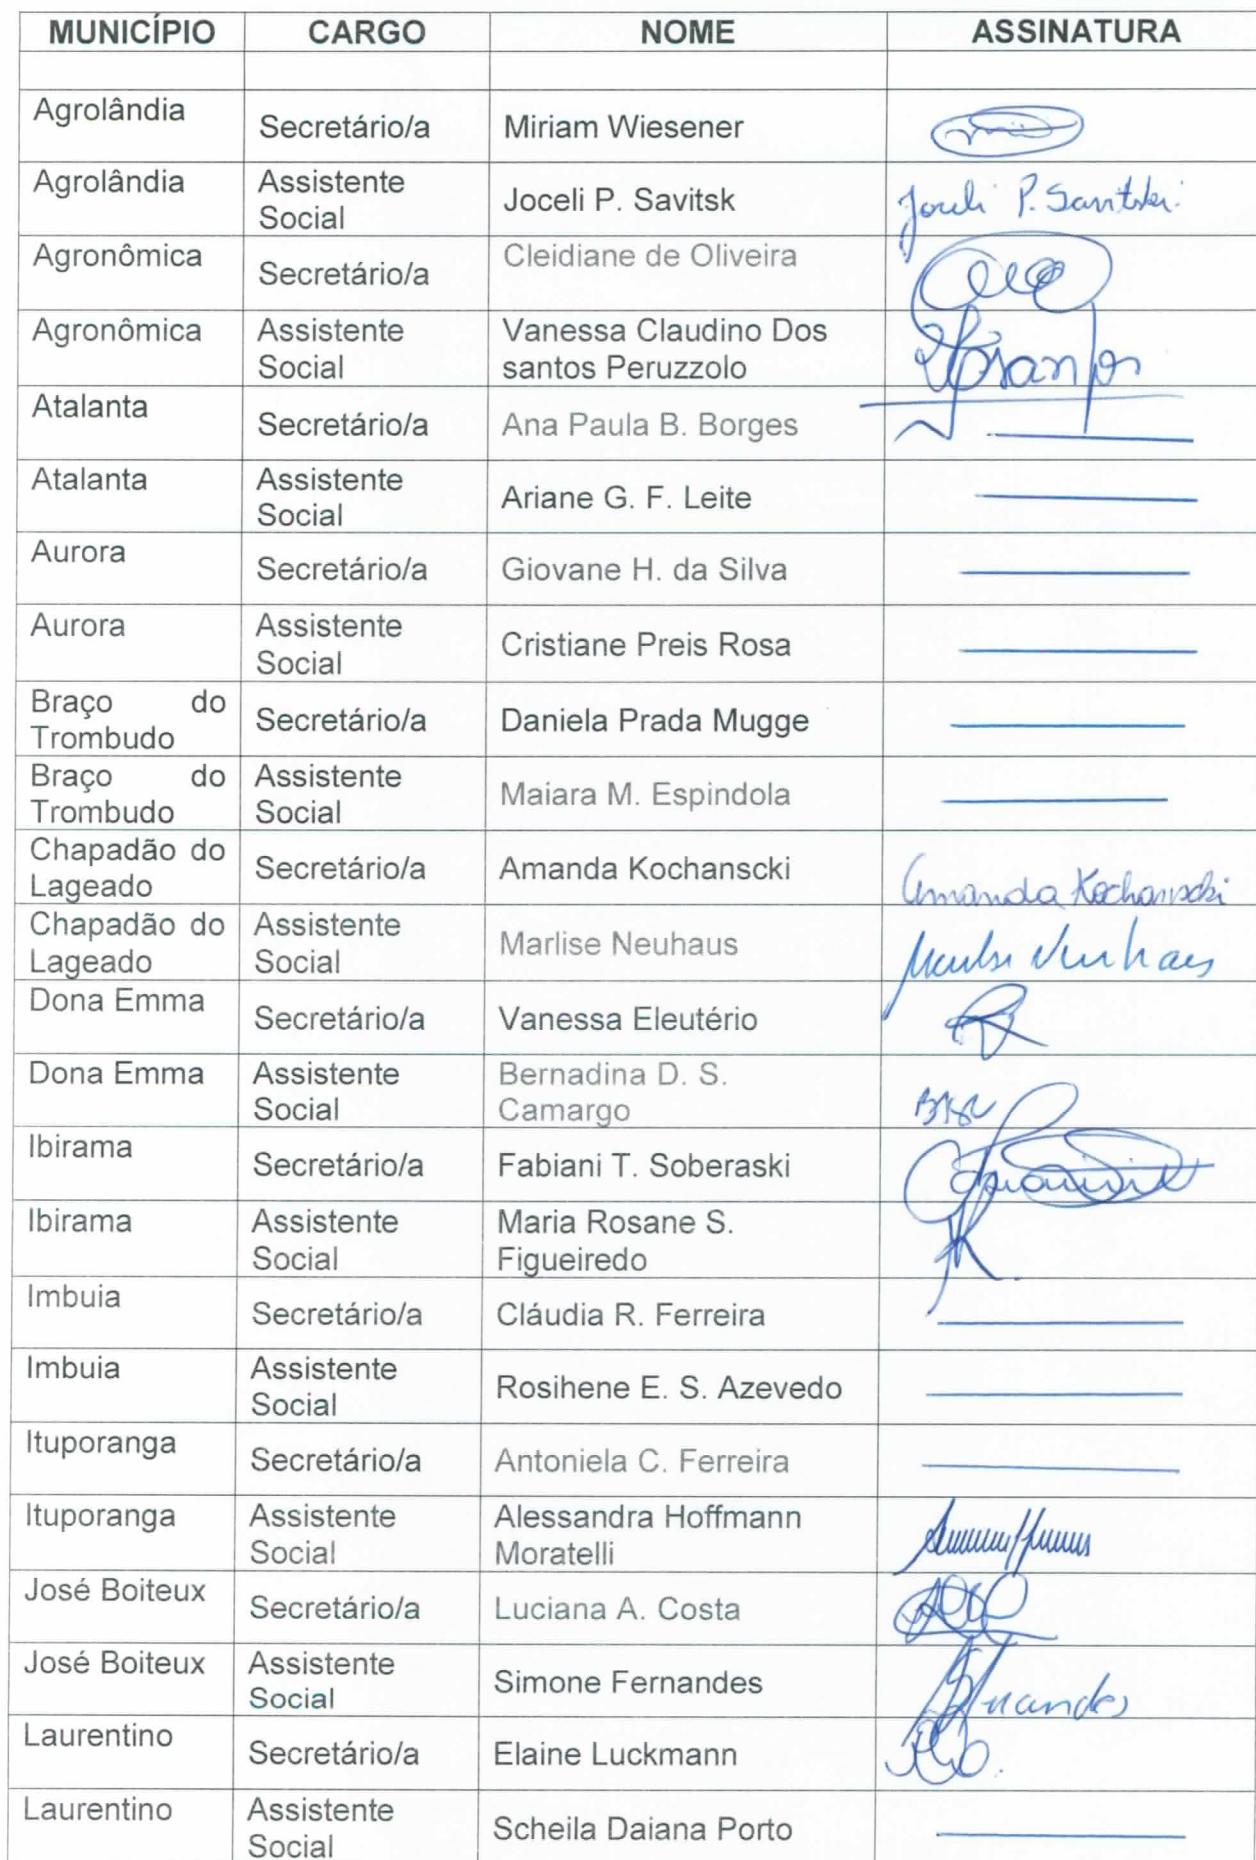 MUNICÍPIO CARGO NOME ASSINATURA
Agrolândia Secretário/a Miriam Wiesener
Agrolândia Assistente Social Joceli P. Savitsk Joceli P. Savitski
Agronômica Secretário/a Cleidiane de Oliveira
Agronômica Assistente Social Vanessa Claudino Dos santos Peruzzolo
Atalanta Secretário/a Ana Paula B. Borges
Atalanta Assistente Social Ariane G. F. Leite
Aurora Secretário/a Giovane H. da Silva
Aurora Assistente Social Cristiane Preis Rosa
Braço do Trombudo Secretário/a Daniela Prada Mugge
Braço do Trombudo Assistente Social Maiara M. Espindola
Chapadão do Lageado Secretário/a Amanda Kochanscki Amanda Kochanscki
Chapadão do Lageado Assistente Social Marlise Neuhaus Marlise Neuhaus
Dona Emma Secretário/a Vanessa Eleutério
Dona Emma Assistente Social Bernadina D. S. Camargo
Ibirama Secretário/a Fabiani T. Soberaski
Ibirama Assistente Social Maria Rosane S. Figueiredo
Imbuia Secretário/a Cláudia R. Ferreira
Imbuia Assistente Social Rosihene E. S. Azevedo
Ituporanga Secretário/a Antoniela C. Ferreira
Ituporanga Assistente Social Alessandra Hoffmann Moratelli
José Boiteux Secretário/a Luciana A. Costa
José Boiteux Assistente Social Simone Fernandes
Laurentino Secretário/a Elaine Luckmann
Laurentino Assistente Social Scheila Daiana Porto